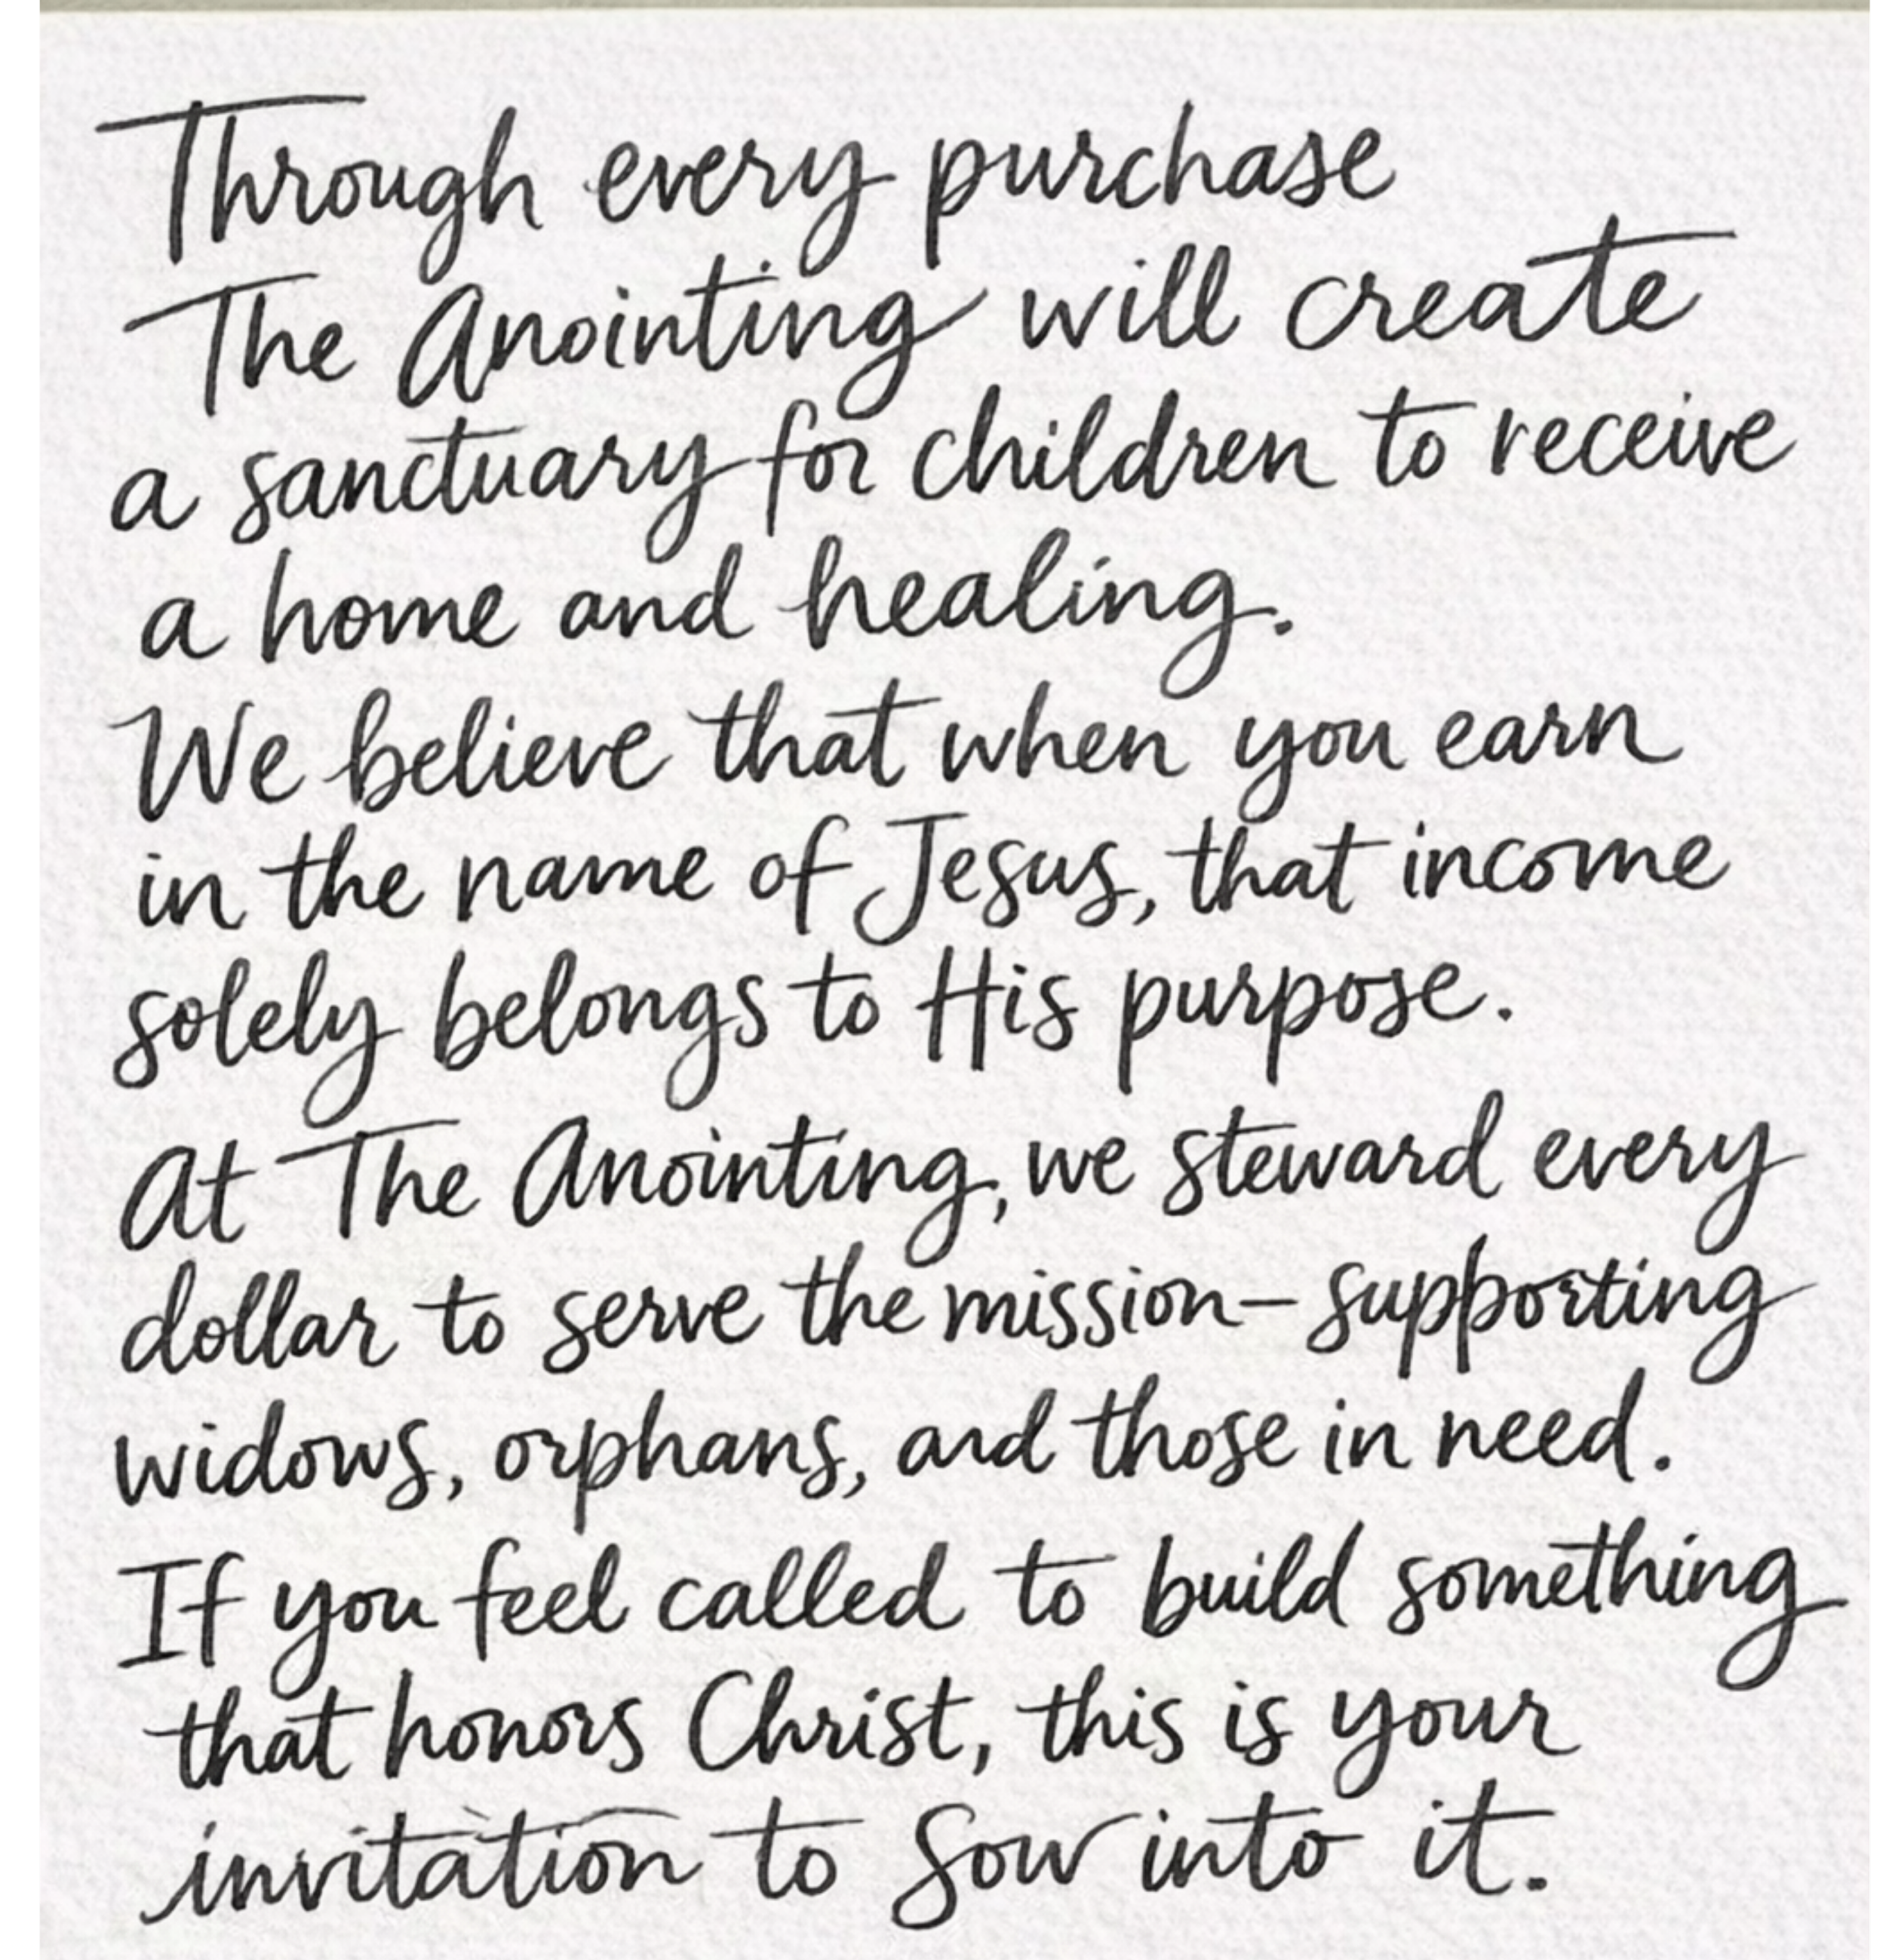 Through every purchase
The Anointing will create
a sanctuary for children to receive
a home and healing.
We believe that when you earn
in the name of Jesus, that income
solely belongs to His purpose.
At The Anointing, we steward every
dollar to serve the mission—supporting
widows, orphans, and those in need.
If you feel called to build something
that honors Christ, this is your
invitation to sow into it.